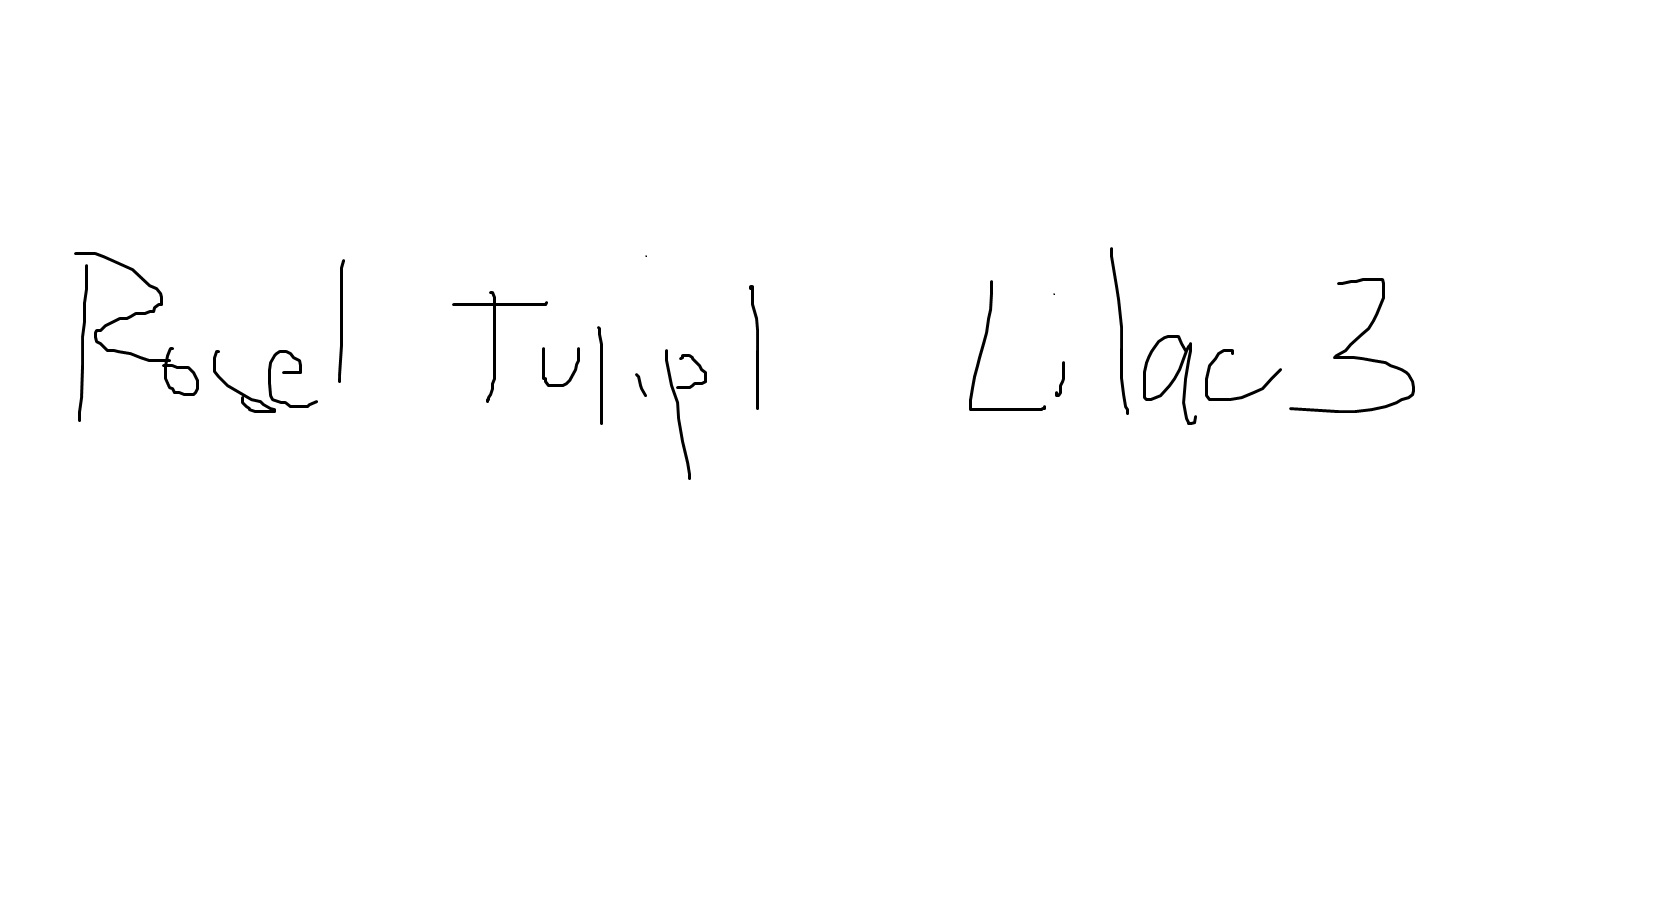 Rose1 Tulip1 Lilac3